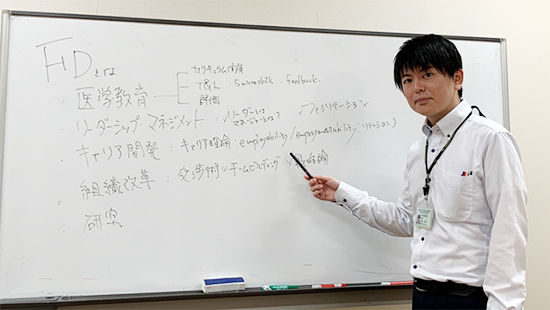 FDとは
カリキュラム開発
医学教育 T&L 5 microskills . feedback
評価
・リーダーシップ マネジメント : リーダーとは ファシリテーション
マネジャーとは?
・キャリア開発 : キャリア理論 employability/
・組織改革 : 交渉術 チームビルディング 理論
・研究